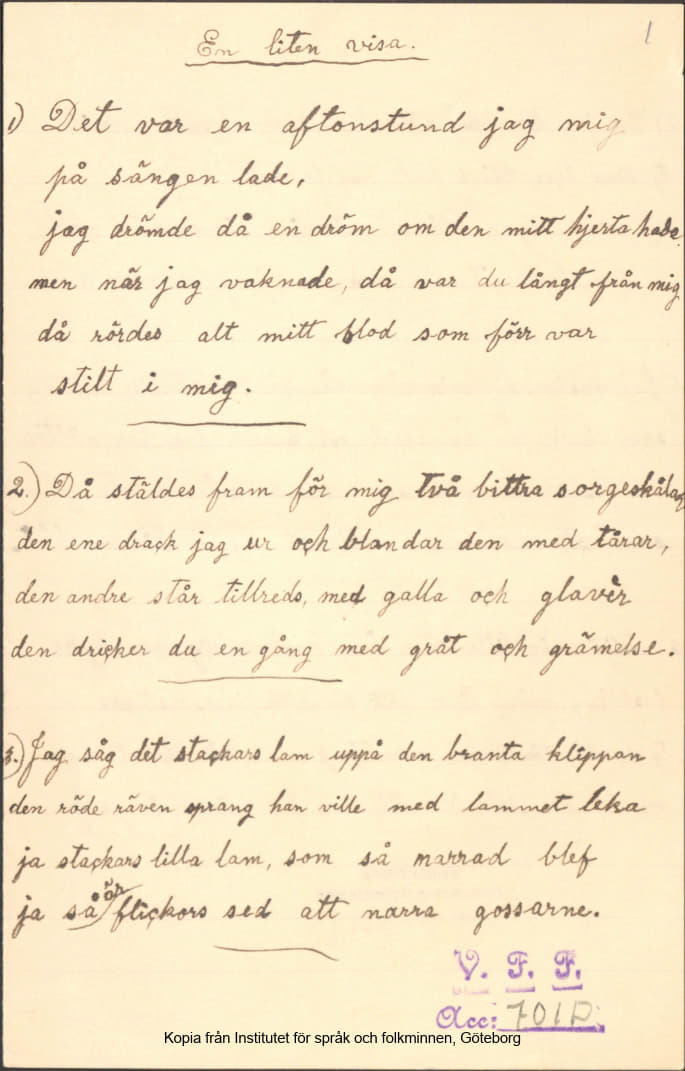 1
En liten visa.
1) Det var en aftonstund jag mig
på sängen lade,
jag drömde då en dröm om den mitt hjerta hade.
men när jag vaknade, då var du långt från mig
då rördes alt mitt blod som förr var
stilt i mig.
2.) Då stäldes fram för mig två bittra sorgeskålar
den ene drack jag ur och blandar den med tårar,
den andre står tillreds, med galla och glavèr
den dricker du en gång med gråt och grämelse.
3.) Jag såg det stackars lam uppå den branta klippan
den röde räven sprang han ville med lammet leka
ja stackars lilla lam, som så marrad blef
ja så är flickors sed att narra gossarne.
V. F. F.
Acc: 701D.
Kopia från Institutet för språk och folkminnen, Göteborg